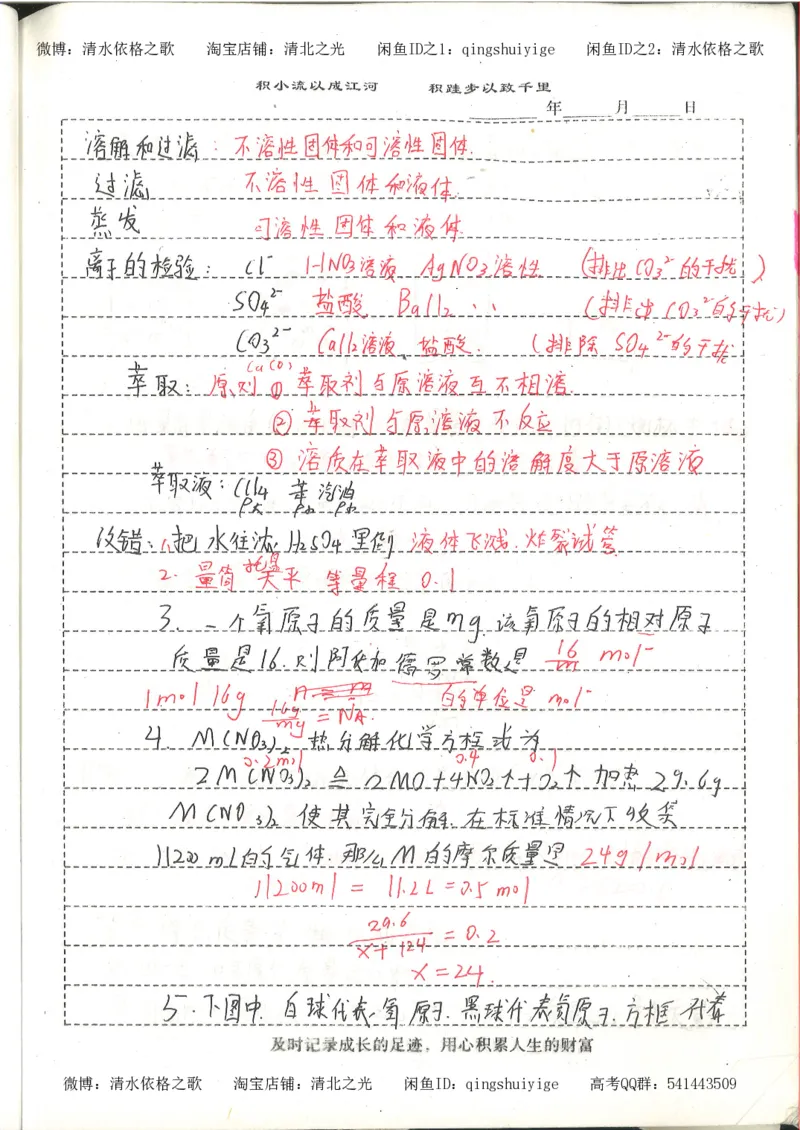 微博：清水依格之歌 淘宝店铺：清北之光 闲鱼ID之1：qingshuiyige 闲鱼ID之2：清水依格之歌
积小流以成江河 积跬步以致千里
年 月 日
溶解和过滤：不溶性固体和可溶性固体.
过滤 不溶性固体和液体.
蒸发 可溶性固体和液体
离子的检验：Cl⁻ HNO₃溶液 AgNO₃溶性 (排出CO₃²⁻的干扰)
SO₄²⁻ 盐酸 BaCl₂ 、、 (排出CO₃²⁻的干扰)
CO₃²⁻ CaCl₂溶液、盐酸. (排除SO₄²⁻的干扰
萃取：原则①萃取剂与原溶液互不相溶.
②萃取剂与原溶液不反应
③溶质在萃取液中的溶解度大于原溶液
萃取液：CCl₄ 苯 汽油
ρ大 ρ小 ρ小
改错：1.把水往浓H₂SO₄里倒 液体飞溅.炸裂试管
2.量筒 托盘天平 等量程 0.1
3.一个氧原子的质量是mg.该氧原子的相对原子
质量是16.则阿伏加德罗常数是 16/m mol⁻
1mol 16g 16g/mg = NA. 的单位是 mol⁻
4. M(NO₃)₂热分解化学方程式为
0.2mol 0.4 0.1
2M(NO₃)₂ ≜ 2MO+4NO₂↑+O₂↑ 加热29.6g
M(NO₃)₂使其完全分解.在标准情况下收集
11200ml的气体.那么M的摩尔质量是 24g/mol
11200ml = 11.2L = 0.5mol
29.6/x+124 = 0.2
x=24.
5.下图中.白球代表氢原子.黑球代表氦原子.方框代表
及时记录成长的足迹，用心积累人生的财富
微博：清水依格之歌 淘宝店铺：清北之光 闲鱼ID：qingshuiyige 高考QQ群：541443509